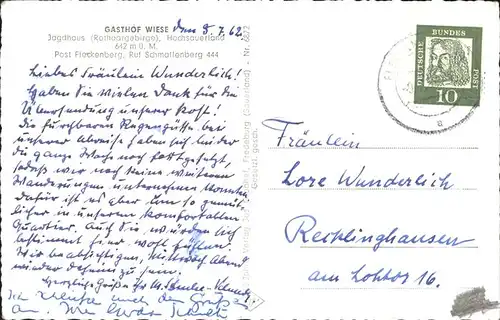 GASTHOF WIESE
Jagdhaus (Rothaargebirge), Hochsauerland
642 m ü. M.
Post Fleckenberg, Ruf Schmallenberg 444
den 8.7.62
Liebes Fräulein Wunderlich!
Haben Sie vielen Dank für die
Übersendung unserer Post!
Die furchtbaren Regengüsse bei
unserer Abreise haben sich leider
die ganze Woche noch fortgesetzt,
sodaß wir noch keine weiteren
Wanderungen unternehmen konnten.
Dafür ist es aber um so gemüt-
licher in unserem komfortablen
Quartier. Auch Sie würden sich
bestimmt hier wohl fühlen!
Wir beabsichtigen, Mittwoch Abend
wieder daheim zu sein.
Herzliche Grüße Ihr
Ich mich den Grüßen
an.
Fredeburg (Sauerland) - Nr. 6622
Gesetzl. gesch.
DEUTSCHE
BUNDES
POST
10
Fräulein
Lore Wunderlich
Recklinghausen
am Lohtor 16.